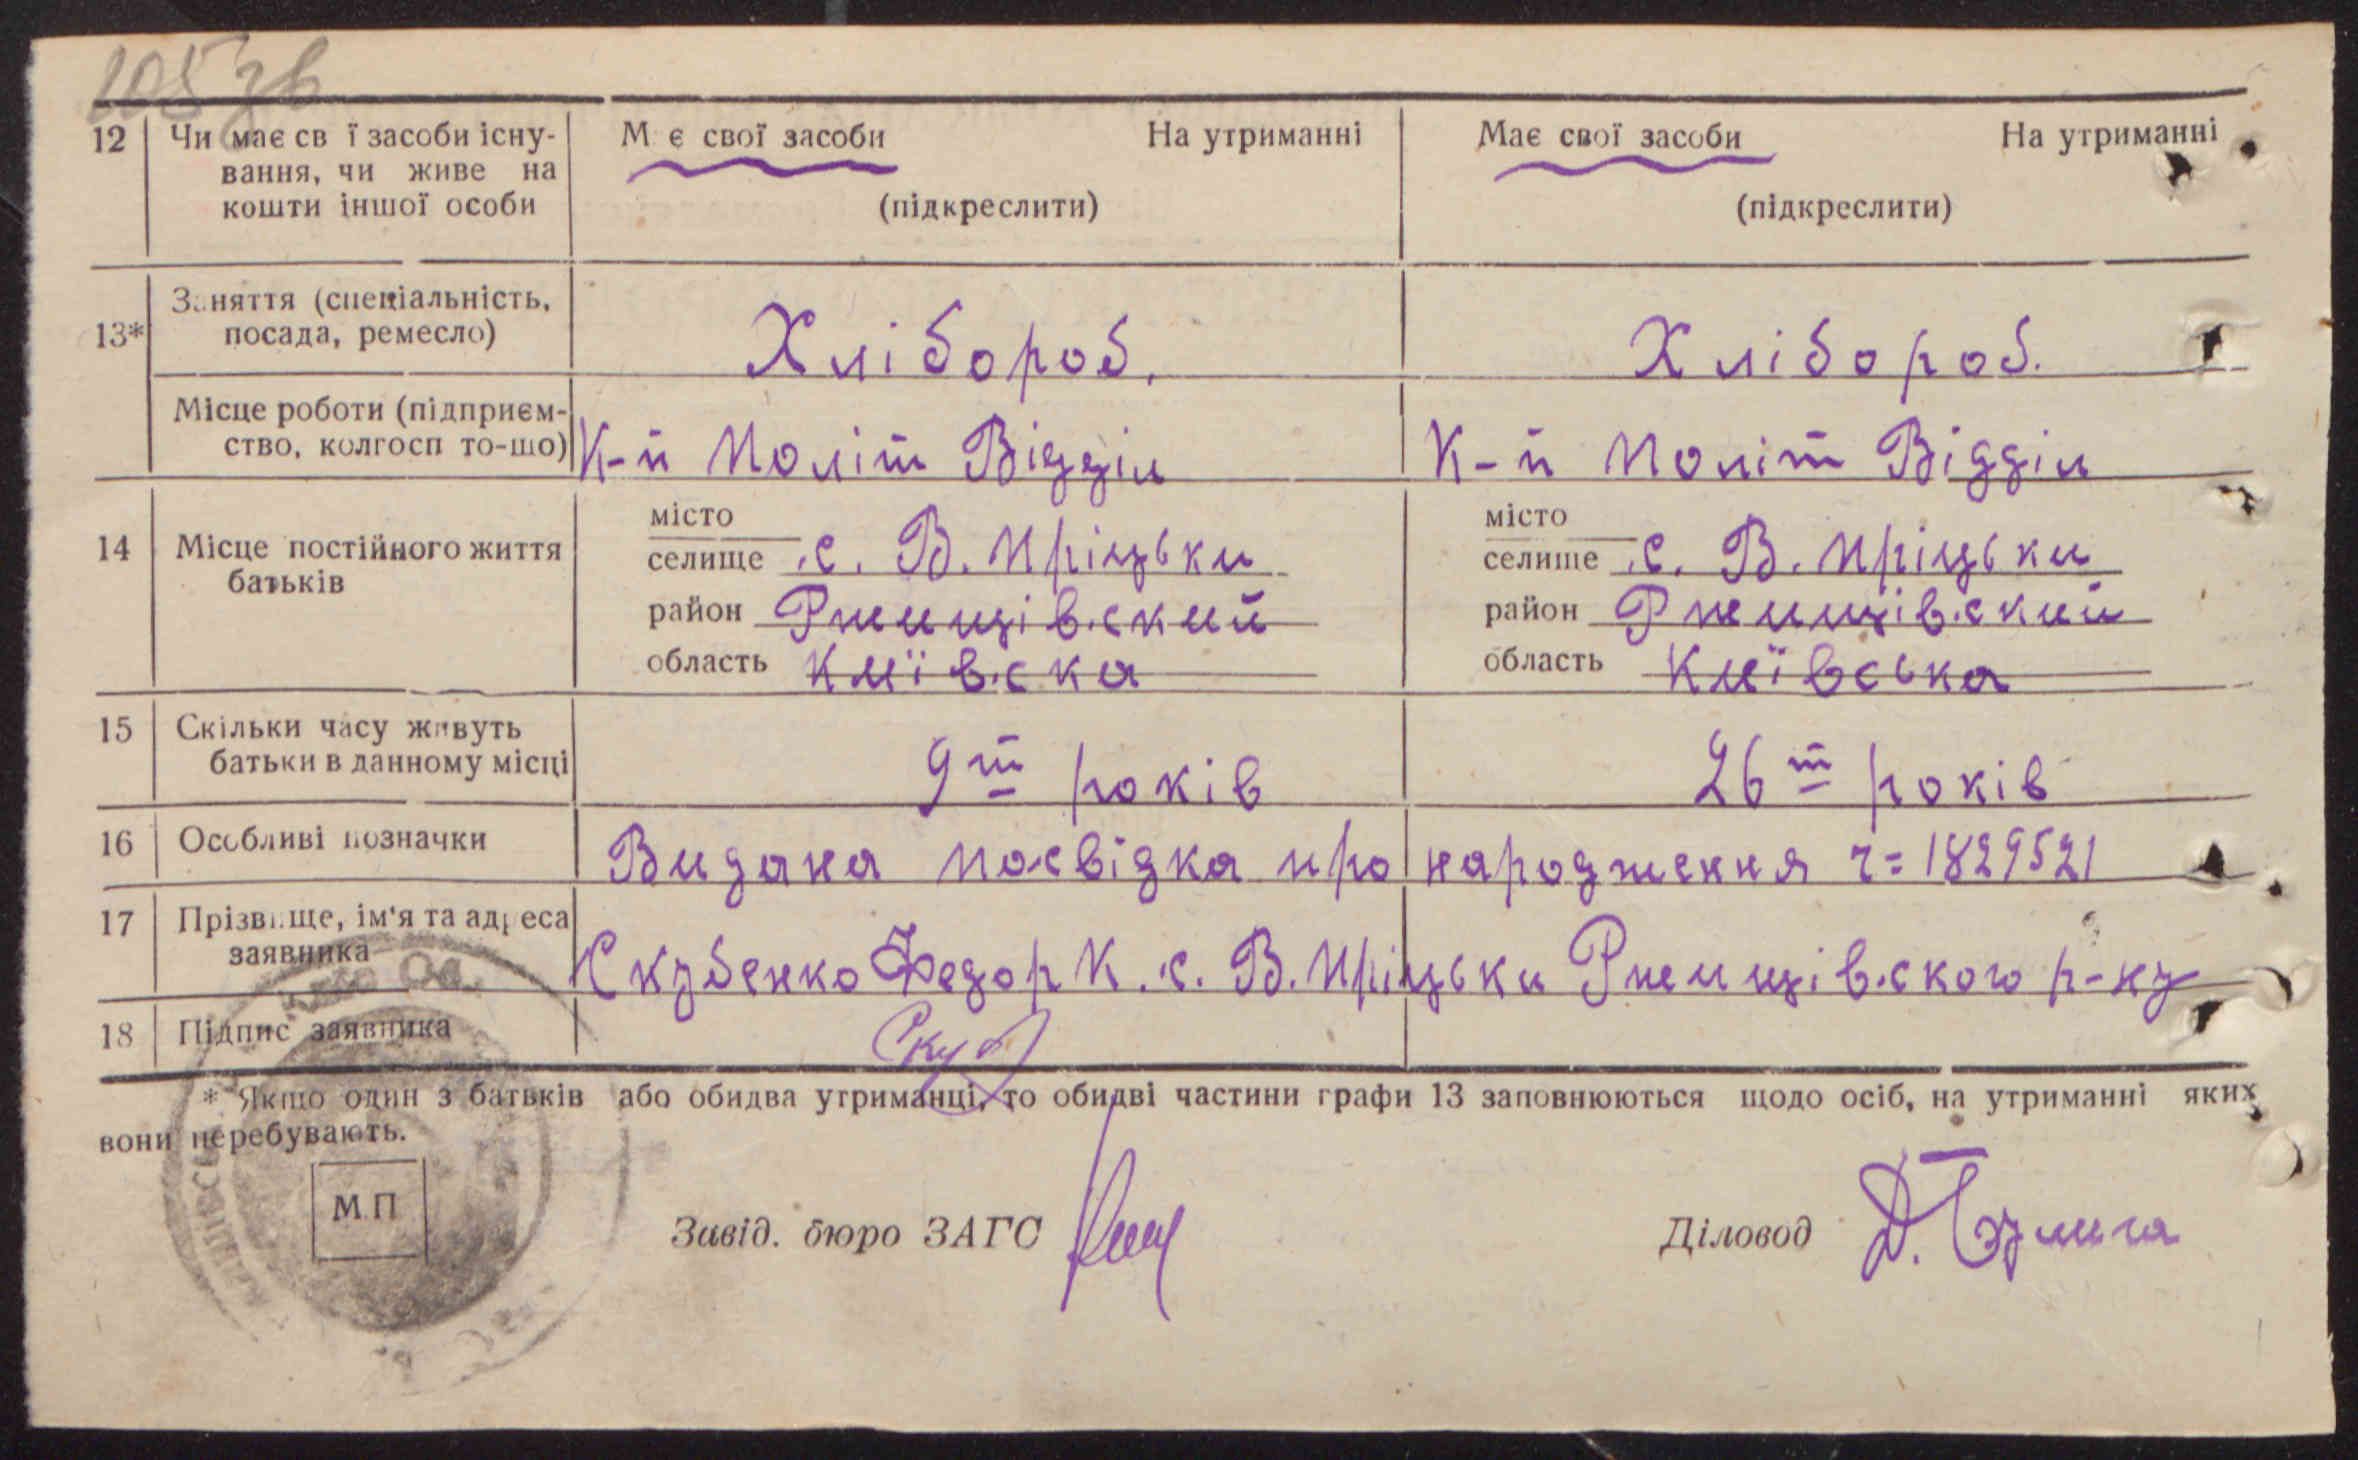 105 зв
12 Чи має св ї засоби існу- М є свої засоби На утриманні Має свої засоби На утриманні
вання, чи живе на
кошти іншої особи (підкреслити) (підкреслити)
Заняття (спеціальність,
13* посада, ремесло) Хлібороб. Хлібороб.
Місце роботи (підприєм-
ство, колгосп то-що) К-п Політ Відділ К-п Політ Відділ
місто місто
14 Місце постійного життя селище с. В. Пріцьки селище с. В. Пріцьки
батьків район Ржищівський район Ржищівський
область Київська область Київська
15 Скільки часу живуть
батьки в данному місці 9т років 26т років
16 Особливі позначки Видана посвідка про народження ч= 1829521
17 Прізвище, ім'я та адреса
заявника Скубенко Федор К. с. В. Пріцьки Ржищівського р-ну
18 Підпис заявника Скуб
* Якщо один з батьків або обидва утриманці, то обидві частини графи 13 заповнюються щодо осіб, на утриманні яких
вони перебувають.
М.П
Завід. бюро ЗАГС Діловод Д.